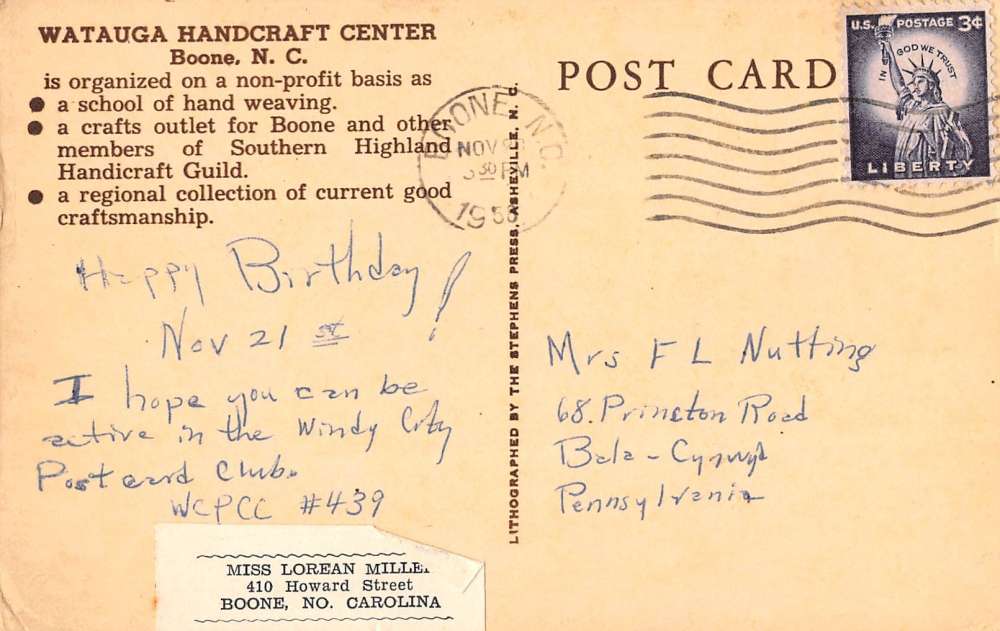 WATAUGA HANDCRAFT CENTER
Boone, N. C.
is organized on a non-profit basis as
● a school of hand weaving.
● a crafts outlet for Boone and other
members of Southern Highland
Handicraft Guild.
● a regional collection of current good
craftsmanship.
Happy Birthday!
Nov 21 st
I hope you can be
active in the Windy City
Postcard Club.
WCPCC #439
MISS LOREAN MILLE
410 Howard Street
BOONE, NO. CAROLINA
LITHOGRAPHED BY THE STEPHENS PRESS, ASHEVILLE, N. C.
POST CARD
BOONE N.C.
NOV
30 PM
U.S. POSTAGE 3¢
IN GOD WE TRUST
LIBERTY
Mrs F L Nutting
68. Princton Road
Bala-Cynwyd
Pennsylvania